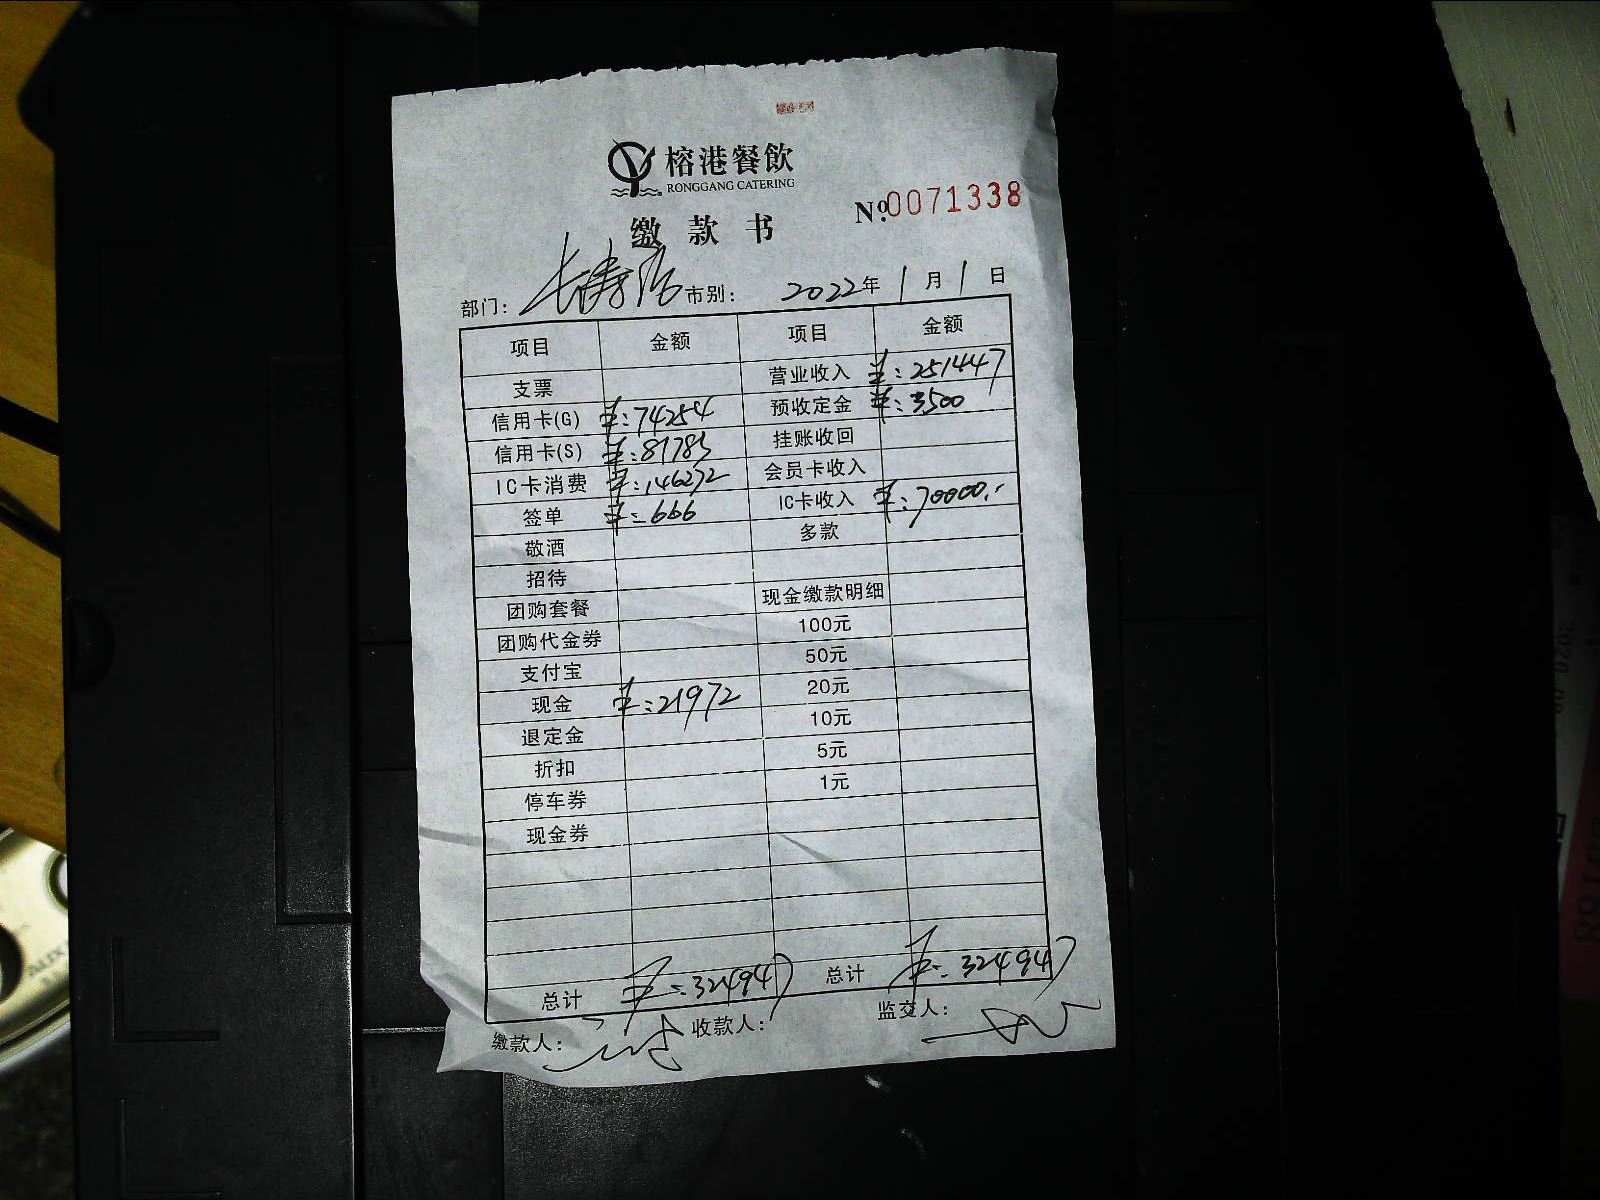 榕港餐飲
RONGGANG CATERING
No.0071338
缴款书
部门： 市别： 2022年1月1日
项目 金额 项目 金额
支票 营业收入 ¥:251447
信用卡(G) ¥:74254 预收定金 ¥:3500
信用卡(S) ¥:81783 挂账收回
IC卡消费 ¥:146272 会员卡收入
签单 ¥:666 IC卡收入 ¥:70000.-
敬酒 多款
招待
团购套餐 现金缴款明细
团购代金券 100元
支付宝 50元
现金 ¥:21972 20元
退定金 10元
折扣 5元
停车券 1元
现金券
总计 ¥:324947 总计 ¥:324947
缴款人： 收款人： 监交人：